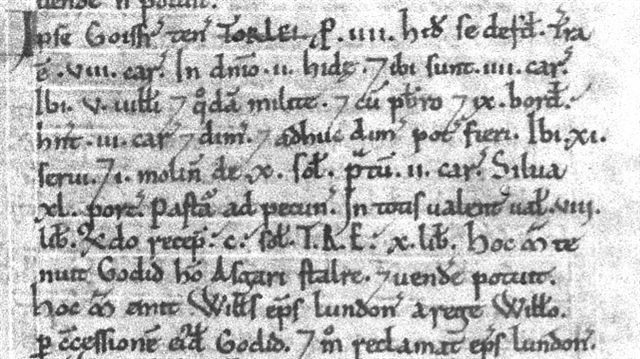 uende n̄ potuit.
Ipse Goisfr̄ ten̄ TORLEI. ꝑ .IIII. hid se defd̄. Tra
ē .VIII. car̄. In dn̄io .II. hidę. ⁊ ibi sunt .IIII. car̄.
Ibi .V. uilli ⁊ qdā milite ⁊ cū pbro ⁊ IX. bord̄.
hn̄t .III. car̄ ⁊ dim̄. ⁊ adhuc dim̄ pot̄ fieri. Ibi XI.
serui. ⁊ I. molin̄ de .X. sol̄. ptū .II. car̄. Silua
XL. porc̄. Pasta ad pecun̄. In totis ualent̄ ual̄ .VIII.
lib̄. Qdo recep̄ .C. sol̄. T.R.E. X. lib̄. Hoc m̄ te
nuit Godid hō Asgari stalre. ⁊ uende potuit.
Hoc m̄ emit Wills ep̄s lundon̄ a rege Willo.
ꝑ c̄cessionē ei'd Godid. ⁊ m° reclamat ep̄s lundon̄.